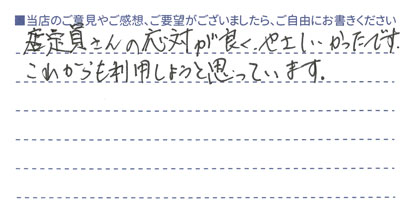 ■当店のご意見やご感想、ご要望がございましたら、ご自由にお書きください
店定員さんの応対が良く、やさしかったです。
これからも利用しようと思っています。